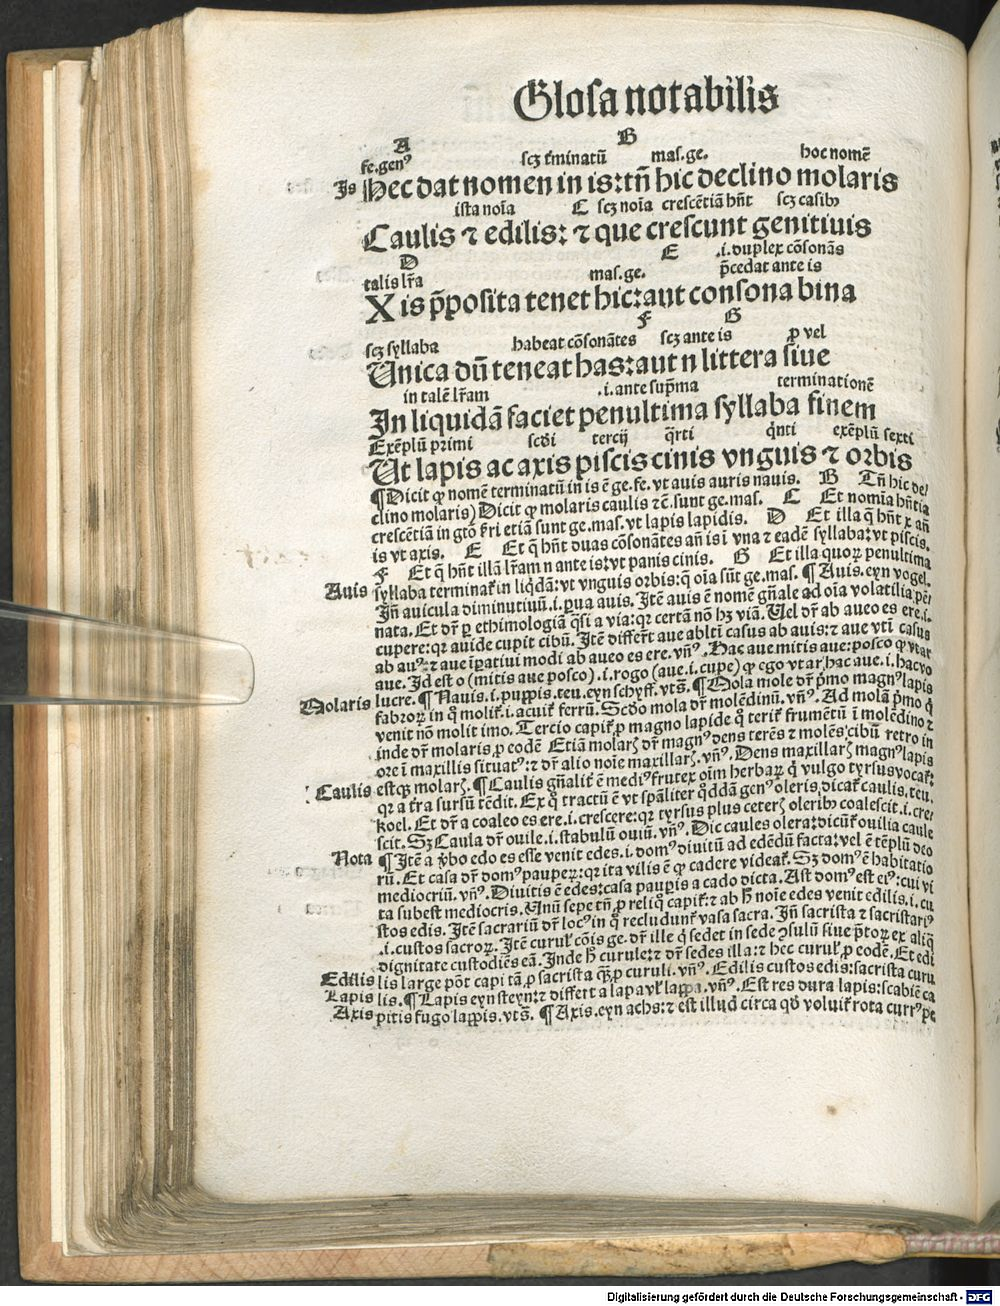 Glosa notabilis
A B
fe.genꝰ scꝫ t̃minatũ mas.ge. hoc nomẽ
Is Hec dat nomen in is:tñ hic declino molaris
ista noĩa C scꝫ noĩa crescẽtiã hñt scꝫ casibꝫ
Caulis ⁊ edilis: ⁊ que crescunt genitiuis
D E .i.duplex cõsonãs
talis lr̃a mas.ge. p̃cedat ante is
X is p̃posita tenet hic:aut consona bina
F G
scꝫ syllaba habeat cõsonãtes scꝫ ante is ꝓ vel
Unica dũ teneat has:aut n littera siue
in talẽ lr̃am .i.ante sup̃ma terminationẽ
In liquidã faciet penultima syllaba finem
Exẽplũ primi scđi tercij q̃rti q̃nti exẽplũ sexti
Ut lapis ac axis piscis cinis vnguis ⁊ orbis
¶Dicit ꝙ nomẽ terminatũ in is ẽ ge.fe.vt auis auris nauis. B Tñ hic de/
clino molaris) Dicit ꝙ molaris caulis ⁊c̃.sunt ge.mas. C Et nomĩa hñtia
crescẽtiã in gtõ ẽ̃ri etiã sunt ge.mas.vt lapis lapidis. D Et illa q̃ hñt x añ
is vt axis. E Et q̃ hñt duas cõsonãtes añ is ĩ vna ⁊ eadẽ syllaba:vt piscis.
F Et q̃ hñt illã lr̃am n ante is:vt panis cinis. G Et illa quoꝝ penultima
Auis syllaba terminat̃ in liq̃dã:vt vnguis orbis:q̃ oĩa sũt ge.mas. ¶Auis.eyn vogel.
Iñ auicula diminutiuũ.i.ꝑua auis. Itẽ auis ẽ nomẽ gñale ad oĩa volatilia pẽ/
nata. Et dr̃ ꝑ ethimologiã q̃si a via:qꝛ certã nõ hꝫ viã. Uel dr̃ ab aueo es ere.i.
cupere:qꝛ auide cupit cibũ. Itẽ differt aue ablti casus ab auis:⁊ aue vti casus
ab auꝰ:⁊ aue ĩꝑatiui modi ab aueo es ere.vñꝰ. Hac aue mitis aue:posco ꝙ vtar
aue. Id est o (mitis aue posco).i.rogo (aue.i.cupe) ꝙ ego vtar hac aue.i.hac vo
lucre. ¶Nauis.i.puppis.teu.eyn schyff.vts̃. ¶Mola mole dr̃ p̃mo magnꝰ lapis
Molaris fabroꝝ in q̃ molit̃.i.acuit̃ ferrũ. Scđo mola dr̃ molẽdinũ.vñꝰ. Ad molã p̃mo q̃
venit nõ molit imo. Tercio capit̃ ꝓ magno lapide q̃ terit̃ frumẽtũ ĩ molẽdino ⁊
inde dr̃ molaris ꝓ eodẽ Etiã molarꝫ dr̃ magnꝰ dens terẽs ⁊ molẽs cibũ retro in
ore ĩ maxillis situatꝰ:⁊ dr̃ alio noĩe maxillarꝫ.vñꝰ. Dens maxillarꝫ magnꝰ lapis
Caulis estqꝫ molarꝫ. ¶Caulis gñalit̃ ẽ mediꝰ frutex oĩm herbaꝝ q̃ vulgo tyrsus vocat̃:
qꝛ a t̃ra sursũ tẽdit. Ex q̃ tractũ ẽ vt sp̃aliter q̃ddã genꝰ oleris dicat̃ caulis.teu.
koel. Et dr̃ a coaleo es ere.i.crescere:qꝛ tyrsus plus ceterꝫ oleribꝫ coalescit.i.cre/
scit. Sꝫ Caula dr̃ ouile.i.stabulũ ouiũ.vñꝰ. Dic caules olera:dicũt̃ ouilia caule
Nota ¶Itẽ a ṽbo edo es esse venit edes.i.domꝰ diuitũ ad edẽdũ facta:vel ẽ tẽplũ deo
rũ. Et casa dr̃ domꝰ pauperꝝ:qꝛ ita vilis ẽ ꝙ cadere videat̃. Sꝫ domꝰ ẽ habitatio
mediocriũ.vñꝰ. Diuitis ẽ edes:casa pauꝑis a cado dicta. Ast domꝰ est eiꝰ:cui vi
ta subest mediocris. Unũ sepe tñ ꝓ reliq̃ capit̃:⁊ ab h̃ noĩe edes venit edilis.i.cu
stos edis. Itẽ sacrariũ dr̃ locꝰ in q̃ recludunt̃ vasa sacra. Iñ sacrista ⁊ sacristariꝰ
.i.custos sacroꝝ. Itẽ curul̃ cõis ge.dr̃ ille q̃ sedet in sede ꝯsulũ siue p̃toꝝ ex aliq̃
dignitate custodiẽs eã. Inde h̃ curule:⁊ dr̃ sedes illa:⁊ hec curul̃ ꝓ eodẽ. Et edi
Edilis lis large põt capi tã ꝓ sacrista q̃ꝫ ꝓ curuli.vñꝰ. Edilis custos edis:sacrista curu
Lapis lis. ¶Lapis eyn steyn:⁊ differt a lap aul̃ lappa.vñꝰ. Est res dura lapis:scabiẽ ca
Axis pitis fugo lappis.vts̃. ¶Axis.eyn achs:⁊ est illud circa qđ voluit̃ rota currꝰ pe
Digitalisierung gefördert durch die Deutsche Forschungsgemeinschaft - DFG